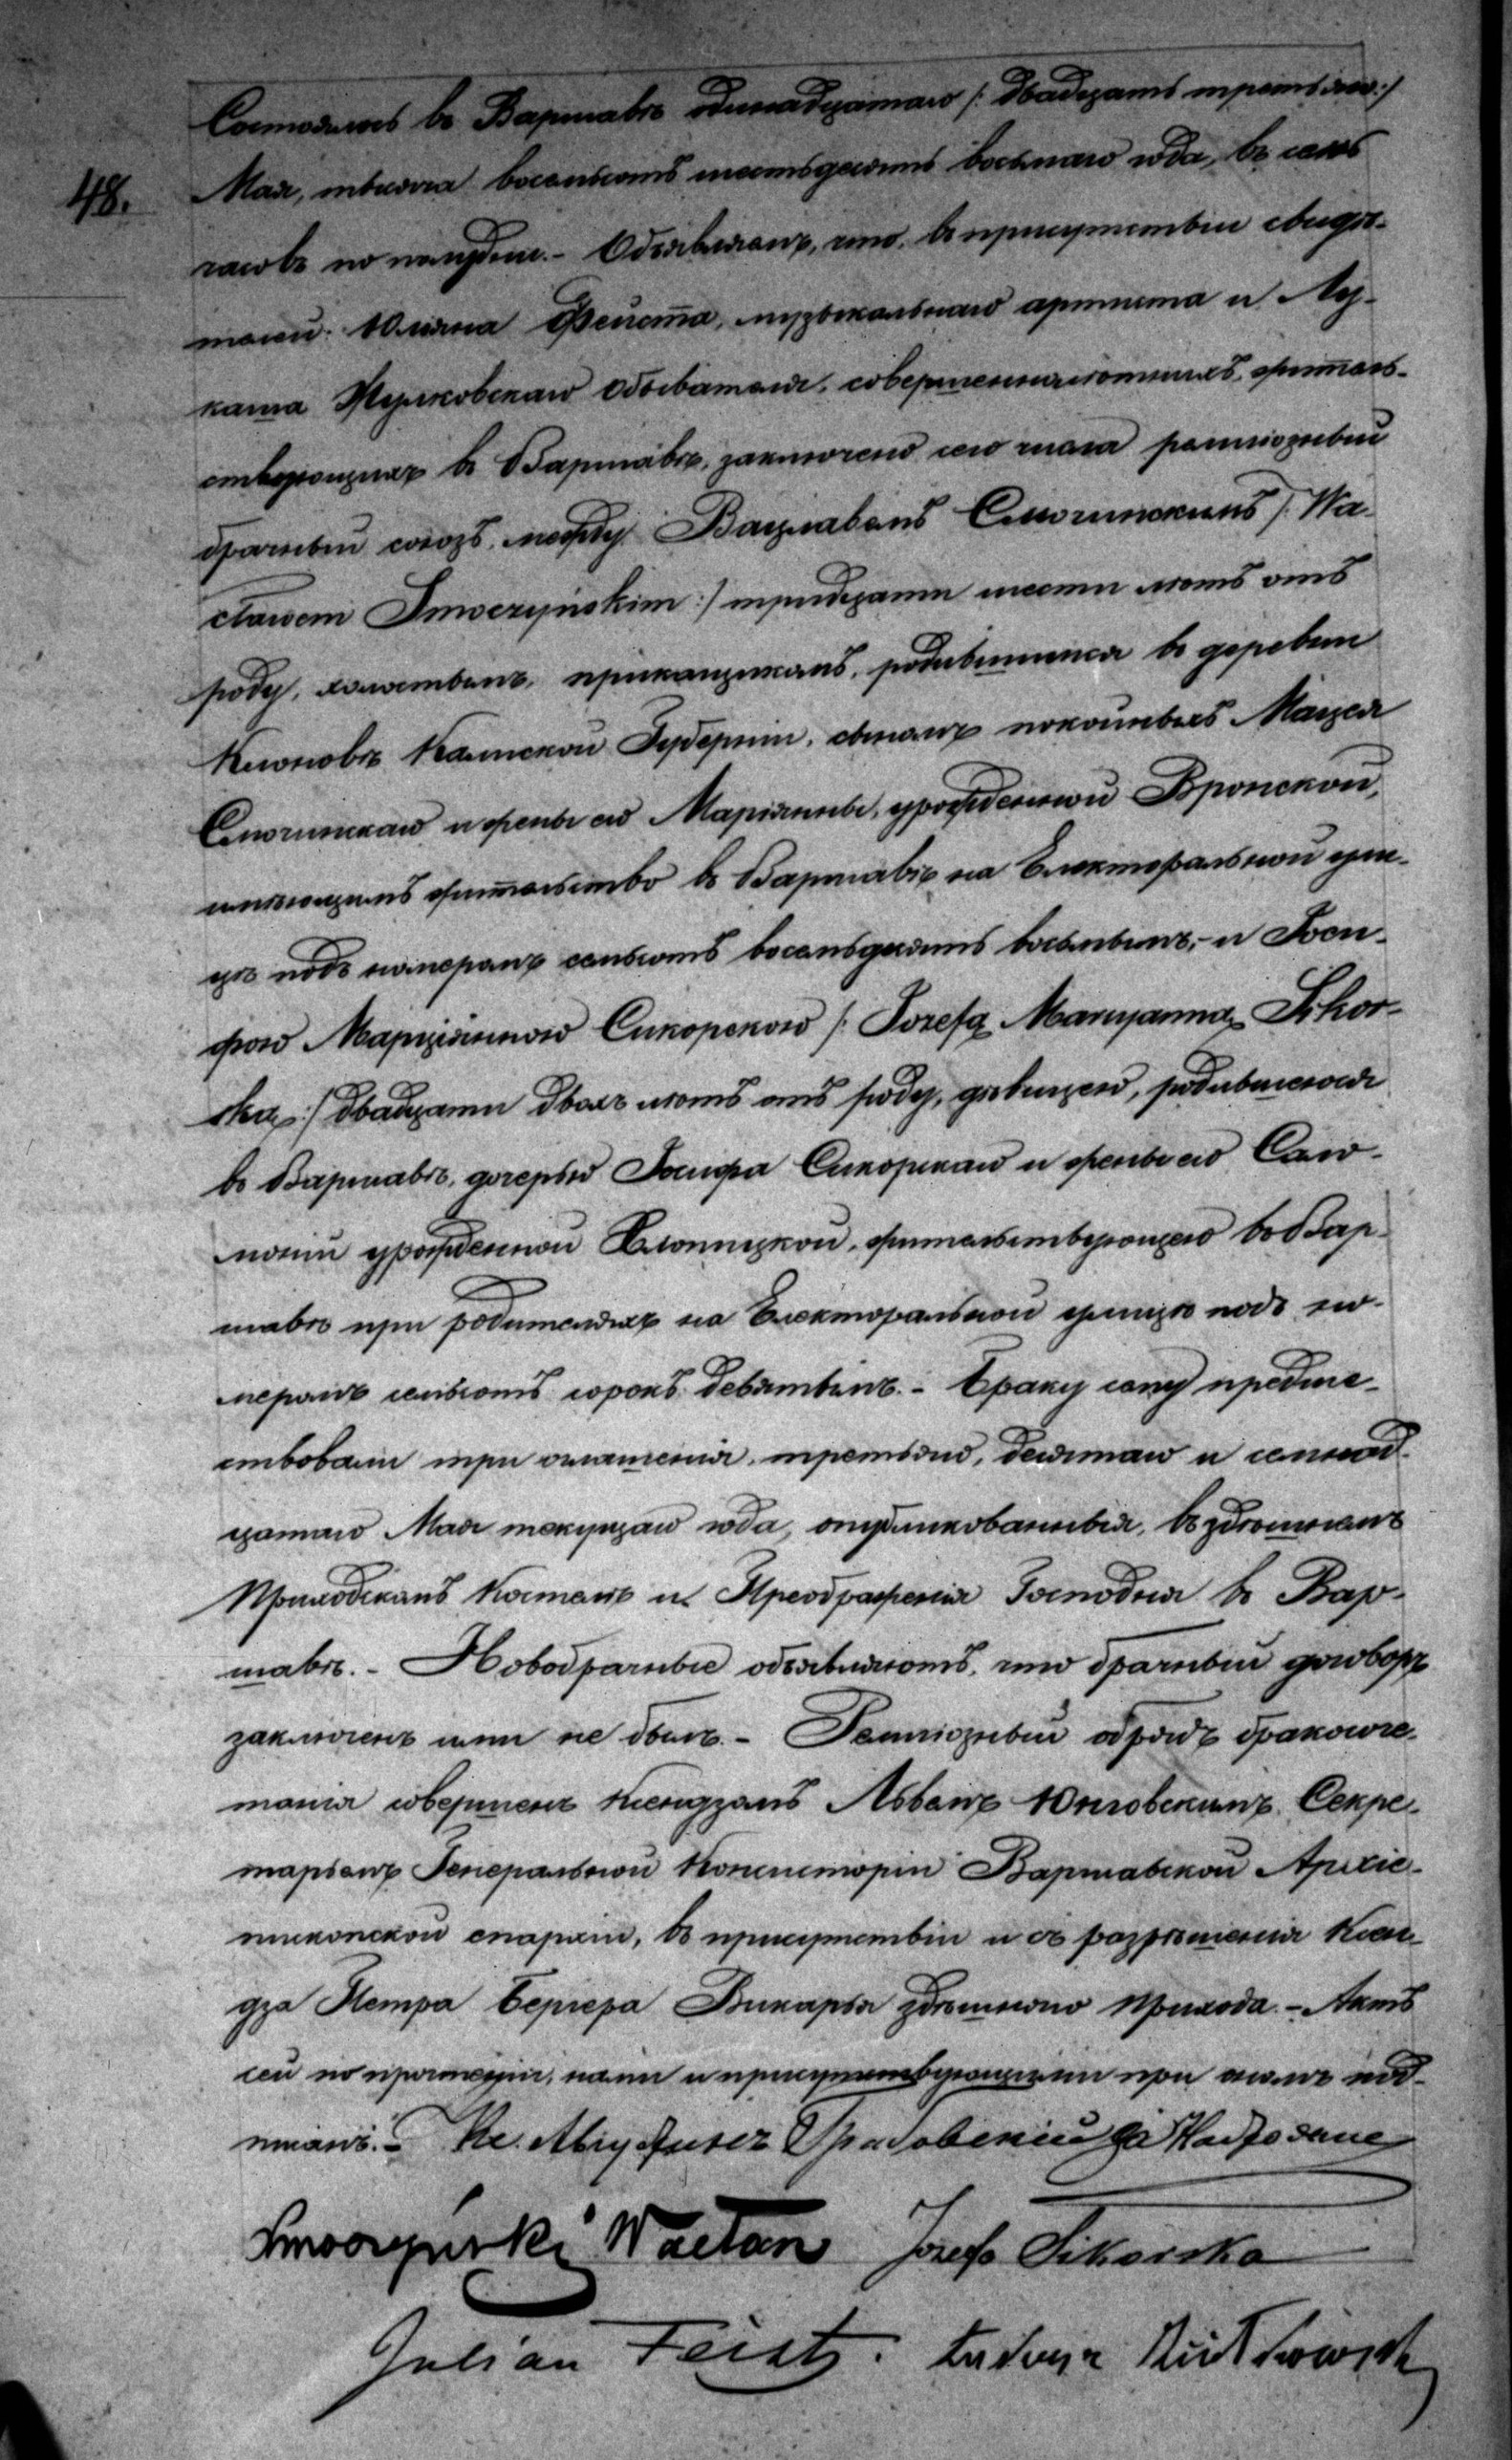 48.
Состоялось въ Варшавѣ одинадцатаго /: двадцать третьяго :/
Мая, тысяча восемьсотъ шестьдесятъ восьмаго года, въ семь
часовъ по полудни. - Объявляемъ, что, въ присутствіи свидѣ-
телей: Юліяна Фейста, музыкальнаго артиста и Лу-
каша обывателя, совершеннолѣтнихъ, житель-
ствующихъ въ Варшавѣ, заключенъ сего числа религіозный
брачный союзъ, между Вацлавомъ Смочинскимъ /: Wa-
cławem Smoczyńskim :/ тридцати шести лѣтъ отъ
роду, холостымъ, прикащикомъ, родившимся въ деревни
Клоновѣ Калиской Губерніи, сыномъ покойныхъ Мацея
Смочинскаго и жены его Маріянны, урожденной Вронской,
имѣющимъ жительство въ Варшавѣ на Електоральной ули-
цѣ подъ номеромъ семьсотъ восемьдесятъ восьмымъ, - и Іоси-
фою Марціянною Сикорскою /: Józefą Maryanną Sikor-
ską :/ двадцати двухъ лѣтъ отъ роду, дѣвицею, родившеюся
въ Варшавѣ, дочерью Іосифа Сикорскаго и жены его Сало-
монии урожденной Хлопицкой, жительствующею въ Вар-
шавѣ при родителяхъ на Електоральной улицѣ подъ но-
меромъ семьсотъ сорокъ девятымъ. - Браку сему предше-
ствовали три оглашенія, третьяго, десятаго и семнад-
цатаго Мая текущаго года, опубликованныя, въ здѣшнемъ
Приходскомъ Костелѣ и Преображенія Господня въ Вар-
шавѣ. - Новобрачные объявляютъ, что брачный договоръ
заключенъ ими не былъ. - Религіозный обрядъ бракосоче-
танія совершенъ Ксендзомъ Львомъ Юнговскимъ Секре-
тарьемъ Генеральной Консисторіи Варшавской Архіе-
пископской епархіи, въ присутствіи и съ разрѣшенія Ксен-
дза Петра Бергера Викарья здѣшняго прихода. - Актъ
сей по прочтеніи, нами и присутствующими при ономъ под-
писанъ. - Кс.
Smoczyński Wacław Józefa Sikorska
Julian Feist.